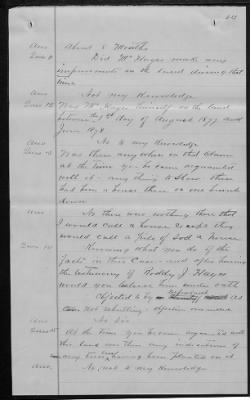 Ans About 8 Months
Ques 9 Did Mr Hayes make any
improvements on the land during that
time
Ans Not my Knowledge
Ques 12 Was Mr Hayes himself on the land
between the 9th day of August 1877 and
June 1878
Ans No to my Knowledge
Ques 13 Was there any when on that Claim
at the time you became acquainted
with it - any thing to Show there
had been a house there or one burnt
down
Ans No there was nothing there that
I would call a house except they
would call a Pile of Sod a house
Ques 14 Knowing what you do of the
facts in this Case - and after hearing
the testimony of Roddy J Hayes
would you believe him under oath
Objected to by
Not rebutting - objection overruled
Ans No Sir
Ques 15 At the time you became acquainted with
this land was there any indications of
any trees having been planted on it
Ans No not to my Knowledge